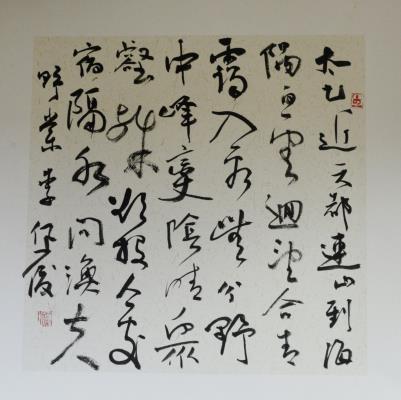 太乙近天都連山到海
隅白雲迴望合青
靄入看無分野
中峰變陰晴衆
壑殊欲投人處
宿隔水問漁夫
李